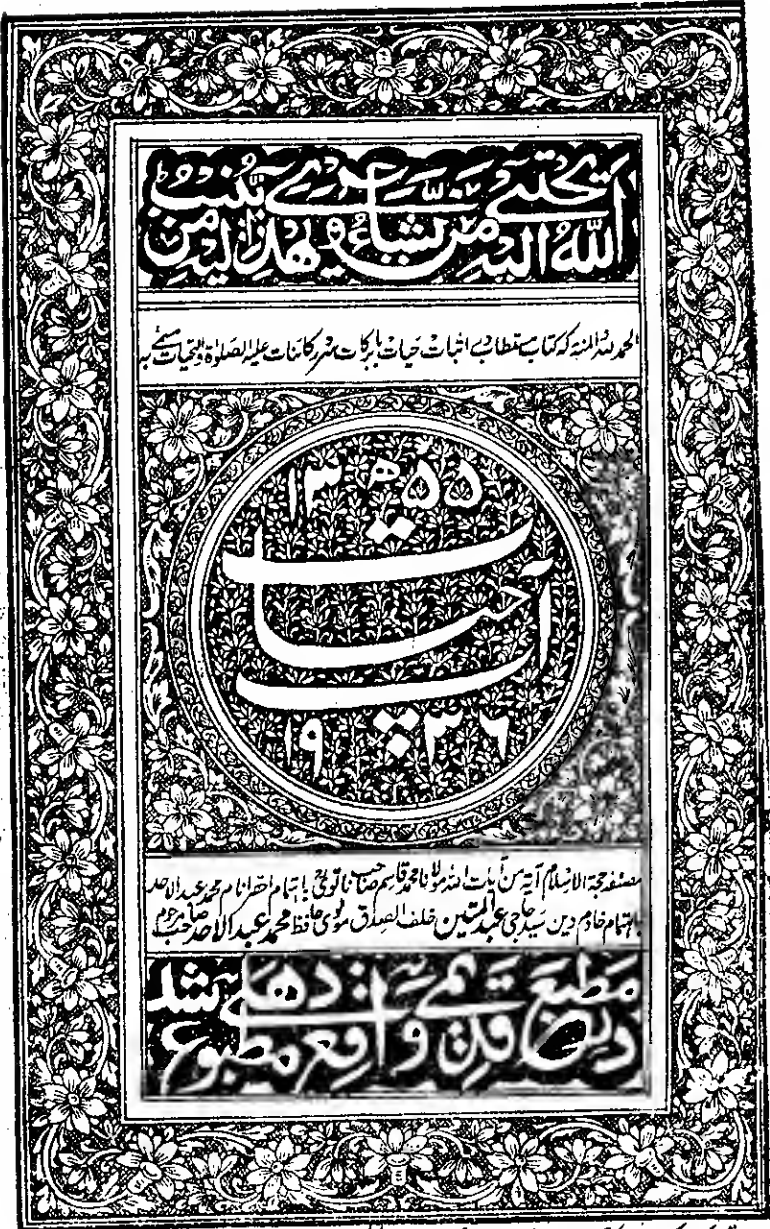 اَللّٰهُ يَجْتَبِيْ اِلَيْهِ مَنْ يَّشَآءُ وَيَهْدِيْ اِلَيْهِ مَنْ يُّنِيْبُ
الحمد للہ والمنہ کہ کتاب مستطاب در اثبات حیات بابرکات سرور کائنات علیہ الصلوٰۃ والتحیات مسمے بہ
۱۳۵۵ھ
آب حیات
۱۹۳۶
مصنفہ حجۃ الاسلام آیۃ من آیات اللہ مولانا محمد قاسم صاحب نانوتوی باہتمام احقر انام محمد عبد الاحد
باہتمام خادم دین سید حاجی عبدالمتین خلف الصدق مولوی حافظ محمد عبد الاحد صاحب مرحوم
در مطبع قدیمی واقع دھلی مطبوع شد